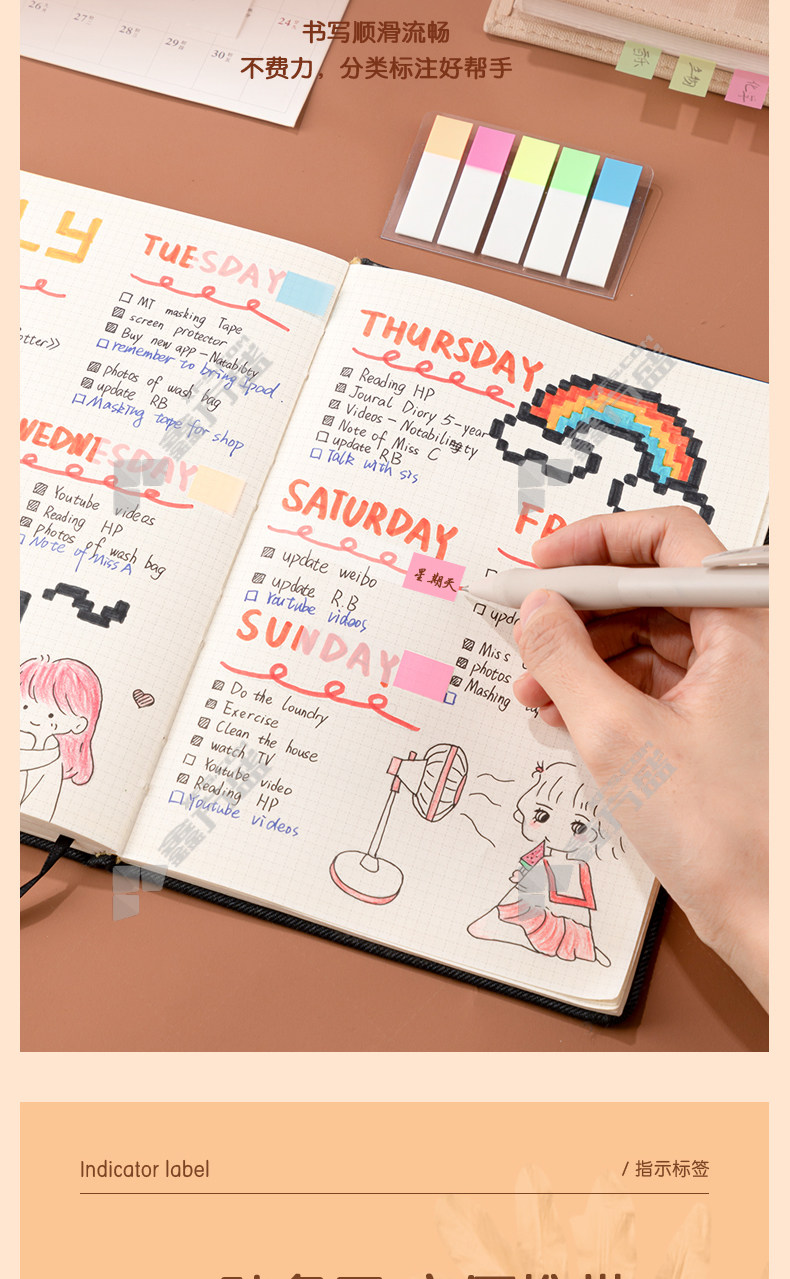 26
27
28
29
30
24
书写顺滑流畅
不费力，分类标注好帮手
LY
TUESDAY
MT masking Tape
screen protector
Buy new app — Notability
remember to bring ipad.
photos of wash bag
update RB
Masking tape for shop
WEDNESDAY
Youtube videos
Reading HP
photos of wash bag
Note of Miss A
THURSDAY
Reading HP
Joural Diory 5-year
Videos - Notability
Note of Miss C
update RB
Talk with sis
SATURDAY
星期天
update weibo
update R.B
Youtube videos
SUNDAY
Do the loundry
Exercise
Clean the house
watch TV
Youtube video
Reading HP
Youtube videos
FR
upd
Miss
photos
Mashing
Indicator label
/ 指示标签